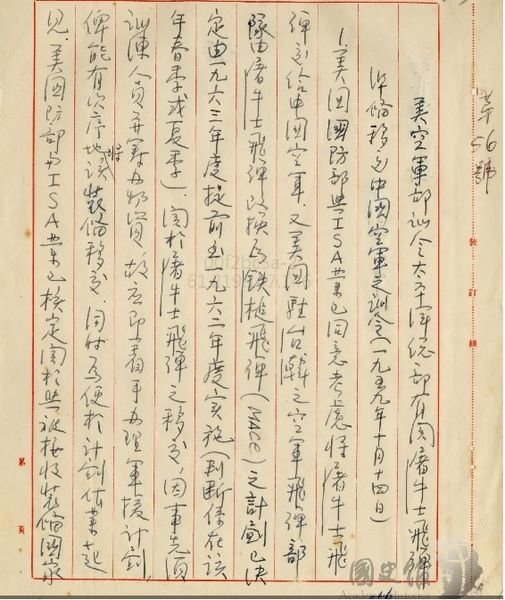 美空軍部訓令太平洋總部有關屠牛士飛彈
準備移交中國空軍之訓令(一九五九年十月十四日)
1.美國國防部與ISA業已同意考慮將屠牛士飛
彈移給中國空軍.又美國駐台韓之空軍飛彈部
隊由屠牛士飛彈改換為鐵槌飛彈(MACE)之計劃已決
定由一九六三年度提前至一九六二年度實施(判斷係在該
年春季或夏季).関於屠牛士飛彈之移交,因事先須
訓練人員并籌办物資,故應即着手办理軍援計劃,
俾能有次序地將該裝備移交.同時為便於計劃作業起
見.美国防部與ISA業已核定関於與被接收裝備國家
第56號
裝訂線
第 頁
國史館